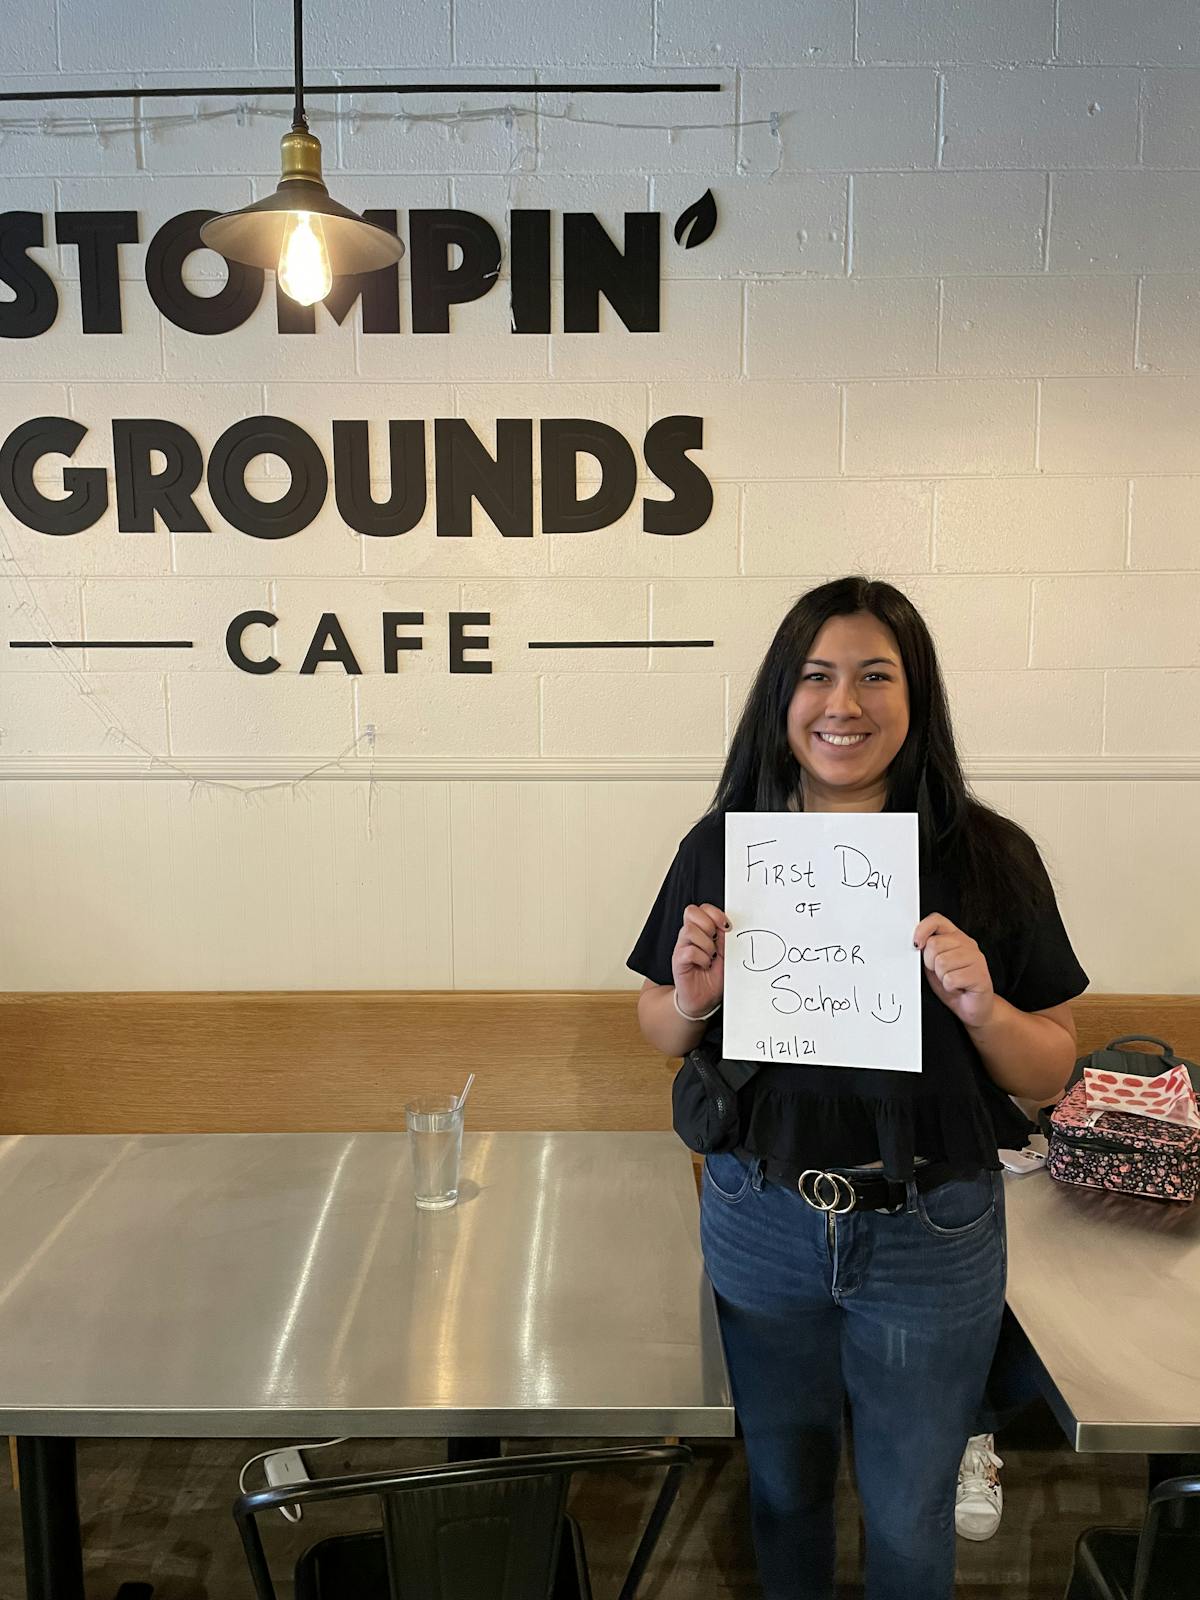 STOMPIN'
GROUNDS
CAFE
First Day
OF
DOCTOR
School
9/21/21